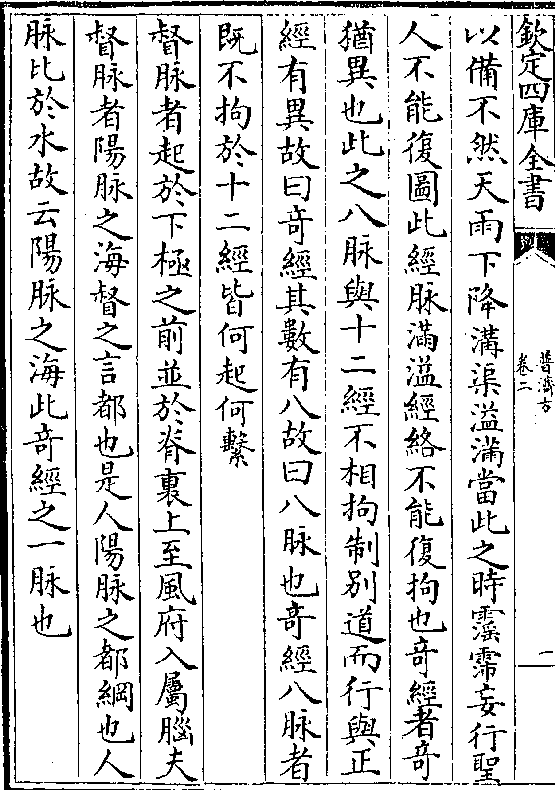 欽定四庫全書
普濟方
卷二
一
以備不然天雨下降溝渠溢滿當此之時霶霈妄行聖
人不能復圖此經脉滿溢經絡不能復拘也奇經者奇
猶異也此之八脉與十二經不相拘制别道而行與正
經有異故曰奇經其數有八故曰八脉也奇經八脉者
既不拘於十二經皆何起何繫
督脉者起於下極之前並於脊裏上至風府入屬腦夫
督脉者陽脉之海督之言都也是人陽脉之都綱也人
脉比於水故云陽脉之海此奇經之一脉也